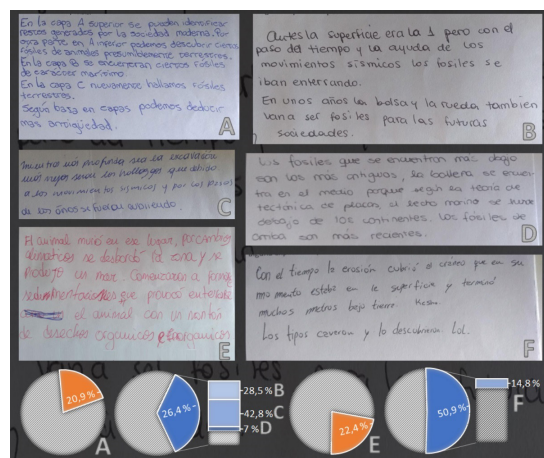 En la capa A superior se pueden identificar
restos generados por la sociedad moderna. Por
otra parte en A inferior podemos descubrir ciertos
fósiles de animales presumiblemente terrestres.
En la capa B se encuentran ciertos fósiles
de carácter marítimo.
En la capa C nuevamente hallamos fósiles
terrestres.
Según basa en capas podemos deducir
mas antigüedad.
A
Antes la superficie era la 1 pero con el
paso del tiempo y la ayuda de los
movimientos sísmicos los fosiles se
iban enterrando.
En unos años la bolsa y la rueda también
van a ser fosiles para las futuras
sociedades.
B
mas profunda sea la excavación
mas viejos seran los hallazgos que debido
a los movimientos sismicos y por los pasos
de los años se fueron
C
Los fosiles que se encuentran mas abajo
son los más antiguos, la ballena se encuen-
tra en el medio porque según la teoria de
tectónica de placas, el lecho marino se hunde
debajo de los continentes. Los fosiles de
arriba son más recientes.
D
El animal murió en ese lugar, por cambios
climaticos se desbordó la zona y se
produjo un mar. Comenzaron a
que provocó
el animal con un montón
de desechos organicos e inorganicos
E
Con el tiempo la erosión cubrió el cráneo que en su
momento estaba en la superficie y terminó
muchos metros bajo tierra.
Los tipos cavaron y lo descubrieron. Lol.
F
20,9 %
A
26,4 %
28,5 % B
42,8 % C
7 % D
22,4 %
E
50,9 %
14,8 %
F